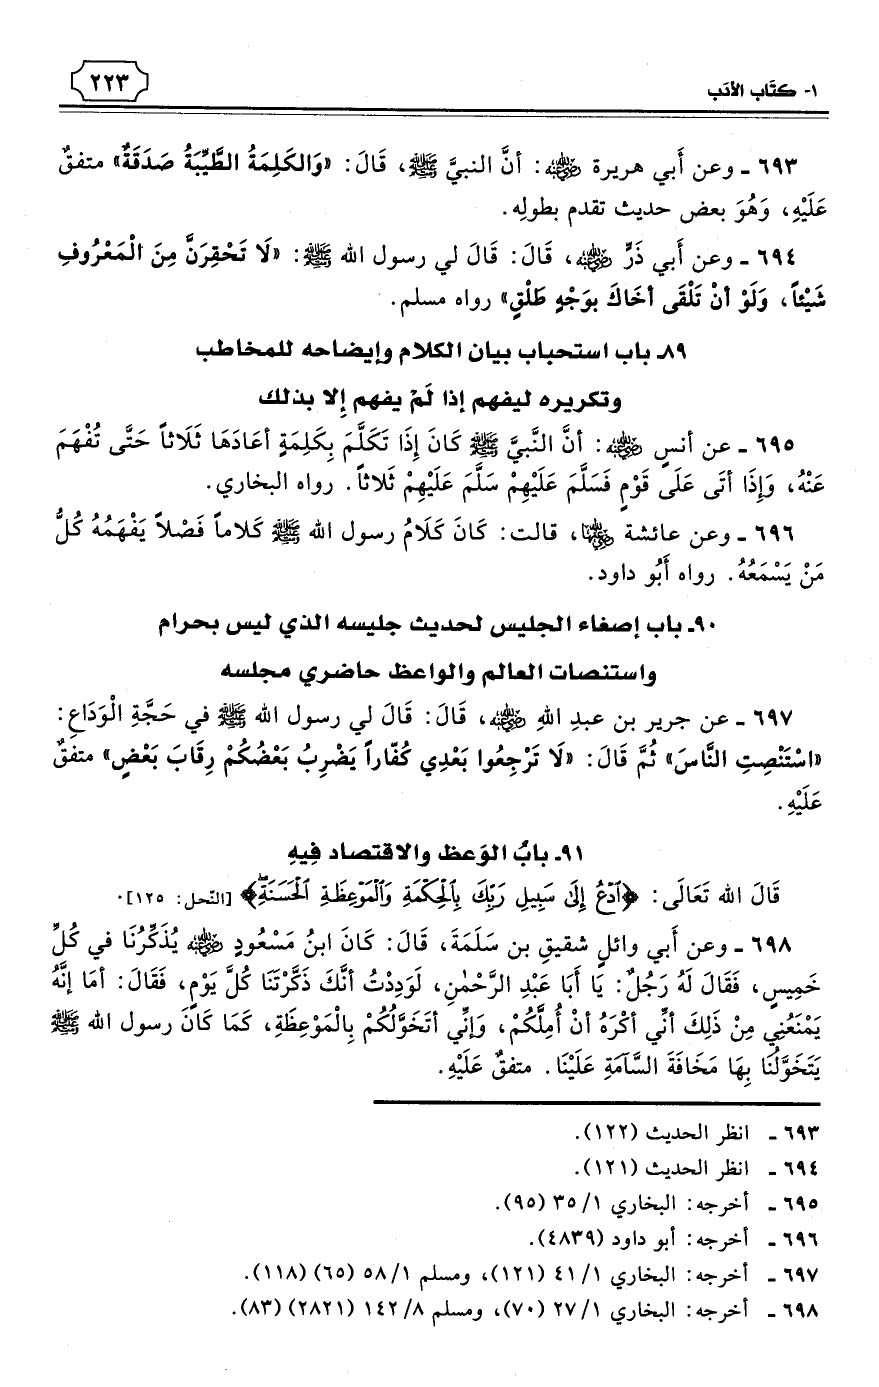 ١- كتَاب الأدَب
٢٢٣
٦٩٣ ـ وعن أَبي هريرة رضي الله عنه: أنَّ النبيَّ ﷺ، قَالَ: «وَالكَلِمَةُ الطَّيِّبَةُ صَدَقَةٌ» متفقٌ
عَلَيْهِ، وَهُوَ بعض حديث تقدم بطولِه.
٦٩٤ ـ وعن أَبي ذَرٍّ رضي الله عنه، قَالَ: قَالَ لي رسول الله ﷺ: «لَا تَحْقِرَنَّ مِنَ الْمَعْرُوفِ
شَيْئاً، وَلَوْ أنْ تَلْقَى أخَاكَ بوَجْهٍ طَلْقٍ» رواه مسلم.
٨٩ـ باب استحباب بيان الكلام وإيضاحه للمخاطب
وتكريره ليفهم إذا لَمْ يفهم إِلا بذلك
٦٩٥ ـ عن أنسٍ رضي الله عنه: أنَّ النَّبيَّ ﷺ كَانَ إِذَا تَكَلَّمَ بِكَلِمَةٍ أعَادَهَا ثَلَاثاً حَتَّى تُفْهَمَ
عَنْهُ، وَإِذَا أتَى عَلَى قَوْمٍ فَسَلَّمَ عَلَيْهِمْ سَلَّمَ عَلَيْهِمْ ثَلاثاً. رواه البخاري.
٦٩٦ ـ وعن عائشة رضي الله عنها، قالت: كَانَ كَلَامُ رسول الله ﷺ كَلاماً فَصْلاً يَفْهَمُهُ كُلُّ
مَنْ يَسْمَعُهُ. رواه أَبُو داود.
٩٠ـ باب إصغاء الجليس لحديث جليسه الذي ليس بحرام
واستنصات العالم والواعظ حاضري مجلسه
٦٩٧ ـ عن جرير بن عبدِ اللهِ رضي الله عنه، قَالَ: قَالَ لي رسول الله ﷺ في حَجَّةِ الْوَدَاعِ:
«اسْتَنْصِتِ النَّاسَ» ثُمَّ قَالَ: «لَا تَرْجِعُوا بَعْدِي كُفّاراً يَضْرِبُ بَعْضُكُمْ رِقَابَ بَعْضٍ» متفقٌ
عَلَيْهِ.
٩١ـ بابُ الوَعظ والاقتصاد فِيهِ
قَالَ الله تَعَالَى: ﴿ٱدْعُ إِلَىٰ سَبِيلِ رَبِّكَ بِٱلْحِكْمَةِ وَٱلْمَوْعِظَةِ ٱلْحَسَنَةِۖ﴾ [النّحل: ١٢٥].
٦٩٨ ـ وعن أَبي وائلٍ شقيقِ بن سَلَمَةَ، قَالَ: كَانَ ابنُ مَسْعُودٍ رضي الله عنه يُذَكِّرُنَا في كُلِّ
خَمِيسٍ، فَقَالَ لَهُ رَجُلٌ: يَا أَبَا عَبْدِ الرَّحْمٰنِ، لَوَدِدْتُ أنَّكَ ذَكَّرْتَنَا كُلَّ يَوْمٍ، فَقَالَ: أمَا إنَّهُ
يَمْنَعُنِي مِنْ ذَلِكَ أنِّي أكْرَهُ أنْ أُمِلَّكُمْ، وَإنِّي أتَخَوَّلُكُمْ بِالْمَوْعِظَةِ، كَمَا كَانَ رسول الله ﷺ
يَتَخَوَّلُنَا بِهَا مَخَافَةَ السَّآمَةِ عَلَيْنَا. متفقٌ عَلَيْهِ.
٦٩٣ ـ انظر الحديث (١٢٢).
٦٩٤ ـ انظر الحديث (١٢١).
٦٩٥ ـ أخرجه: البخاري ١/ ٣٥ (٩٥).
٦٩٦ ـ أخرجه: أبو داود (٤٨٣٩).
٦٩٧ ـ أخرجه: البخاري ١/ ٤١ (١٢١)، ومسلم ١/ ٥٨ (٦٥) (١١٨).
٦٩٨ ـ أخرجه: البخاري ١/ ٢٧ (٧٠)، ومسلم ٨/ ١٤٢ (٢٨٢١) (٨٣).